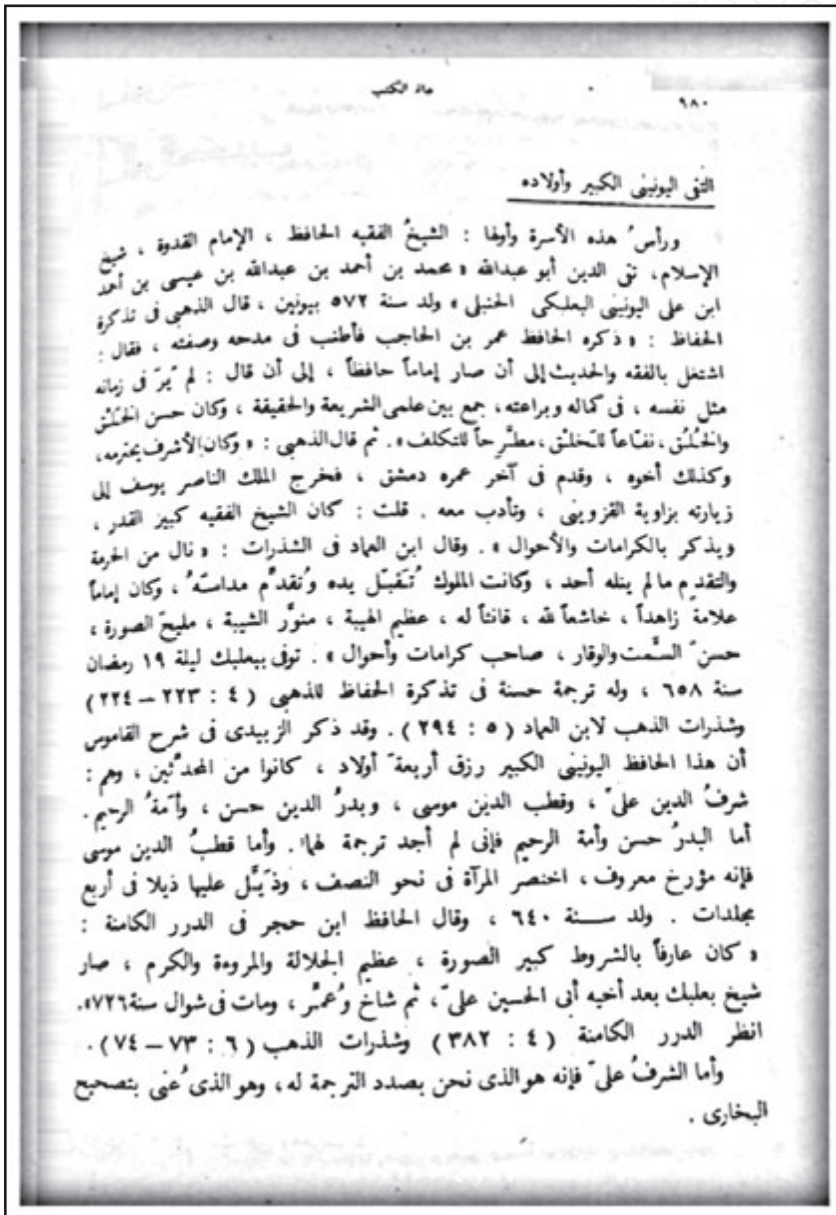 مجلة الكتب
٩٨٠
التقى اليونينى الكبير وأولاده
ورأسُ هذه الأسرة وأولها : الشيخُ الفقيه الحافظ ، الإمام القدوة ، شيخ
الإسلام، تقى الدين أبو عبدالله « محمد بن أحمد بن عبدالله بن عيسى بن أحمد
ابن على اليونينى البعلبكى الحنبلى » ولد سنة ٥٧٢ بيونين ، قال الذهبى فى تذكرة
الحفاظ : « ذكره الحافظ عمر بن الحاجب فأطنب فى مدحه وصفته ، فقال :
اشتغل بالفقه والحديث إلى أن صار إماماً حافظاً ، إلى أن قال : لم يَرَ فى زمانه
مثل نفسه ، فى كماله وبراعته، جمع بين علمى الشريعة والحقيقة ، وكان حسن الخَلْق
والخُلُق، نفّاعاً للخلق، مطَّرِحاً للتكلف». ثم قال الذهبى : « وكان الأشرف يحترمه،
وكذلك أخوه ، وقدم فى آخر عمره دمشق ، فخرج الملك الناصر يوسف إلى
زيارته بزاوية القزوينى ، وتأدب معه . قلت : كان الشيخ الفقيه كبيز القدر ،
ويذكر بالكرامات والأحوال » . وقال ابن العماد فى الشذرات : « نال من الحرمة
والتقدم مالم ينله أحد ، وكانت الملوك تُقبّل يده وتُقدّم مداسَه ، وكان إماماً
علامة زاهداً ، خاشعاً لله ، قانتاً له ، عظيم الهيبة ، منوَّر الشيبة ، مليحَ الصورة ،
حسنَ السَّمت والوقار ، صاحب كرامات وأحوال » . توفى ببعلبك ليلة ١٩ رمضان
سنة ٦٥٨ ، وله ترجمة حسنة فى تذكرة الحفاظ للذهبى ( ٤ : ٢٢٣ – ٢٢٤ )
وشذرات الذهب لابن العماد ( ٥ : ٢٩٤ ) . وقد ذكر الزبيدى فى شرح القاموس
أن هذا الحافظ اليونينى الكبير رزق أربعةَ أولاد ، كانوا من المحدّثين ، وهم :
شرفُ الدين علىّ ، وقطب الدين موسى ، وبدرُ الدين حسن ، وأمَةُ الرحيم .
أما البدرُ حسن وأمة الرحيم فإنى لم أجد ترجمة لهما . وأما قطبُ الدين موسى
فإنه مؤرخ معروف ، اختصر المرآة فى نحو النصف ، وذيَّل عليها ذيلا فى أربع
مجلدات . ولد سنة ٦٤٠ ، وقال الحافظ ابن حجر فى الدرر الكامنة :
« كان عارفاً بالشروط كبير الصورة ، عظيم الجلالة والمروءة والكرم ، صار
شيخ بعلبك بعد أخيه أبى الحسين علىّ ، ثم شاخ وعُمّر ، ومات فى شوال سنة ٧٢٦».
انظر الدرر الكامنة ( ٤ : ٣٨٢ ) وشذرات الذهب ( ٦ : ٧٣ – ٧٤ ) .
وأما الشرفُ علىّ فإنه هو الذى نحن بصدد الترجمة له، وهو الذى عُنى بتصحيح
البخارى .